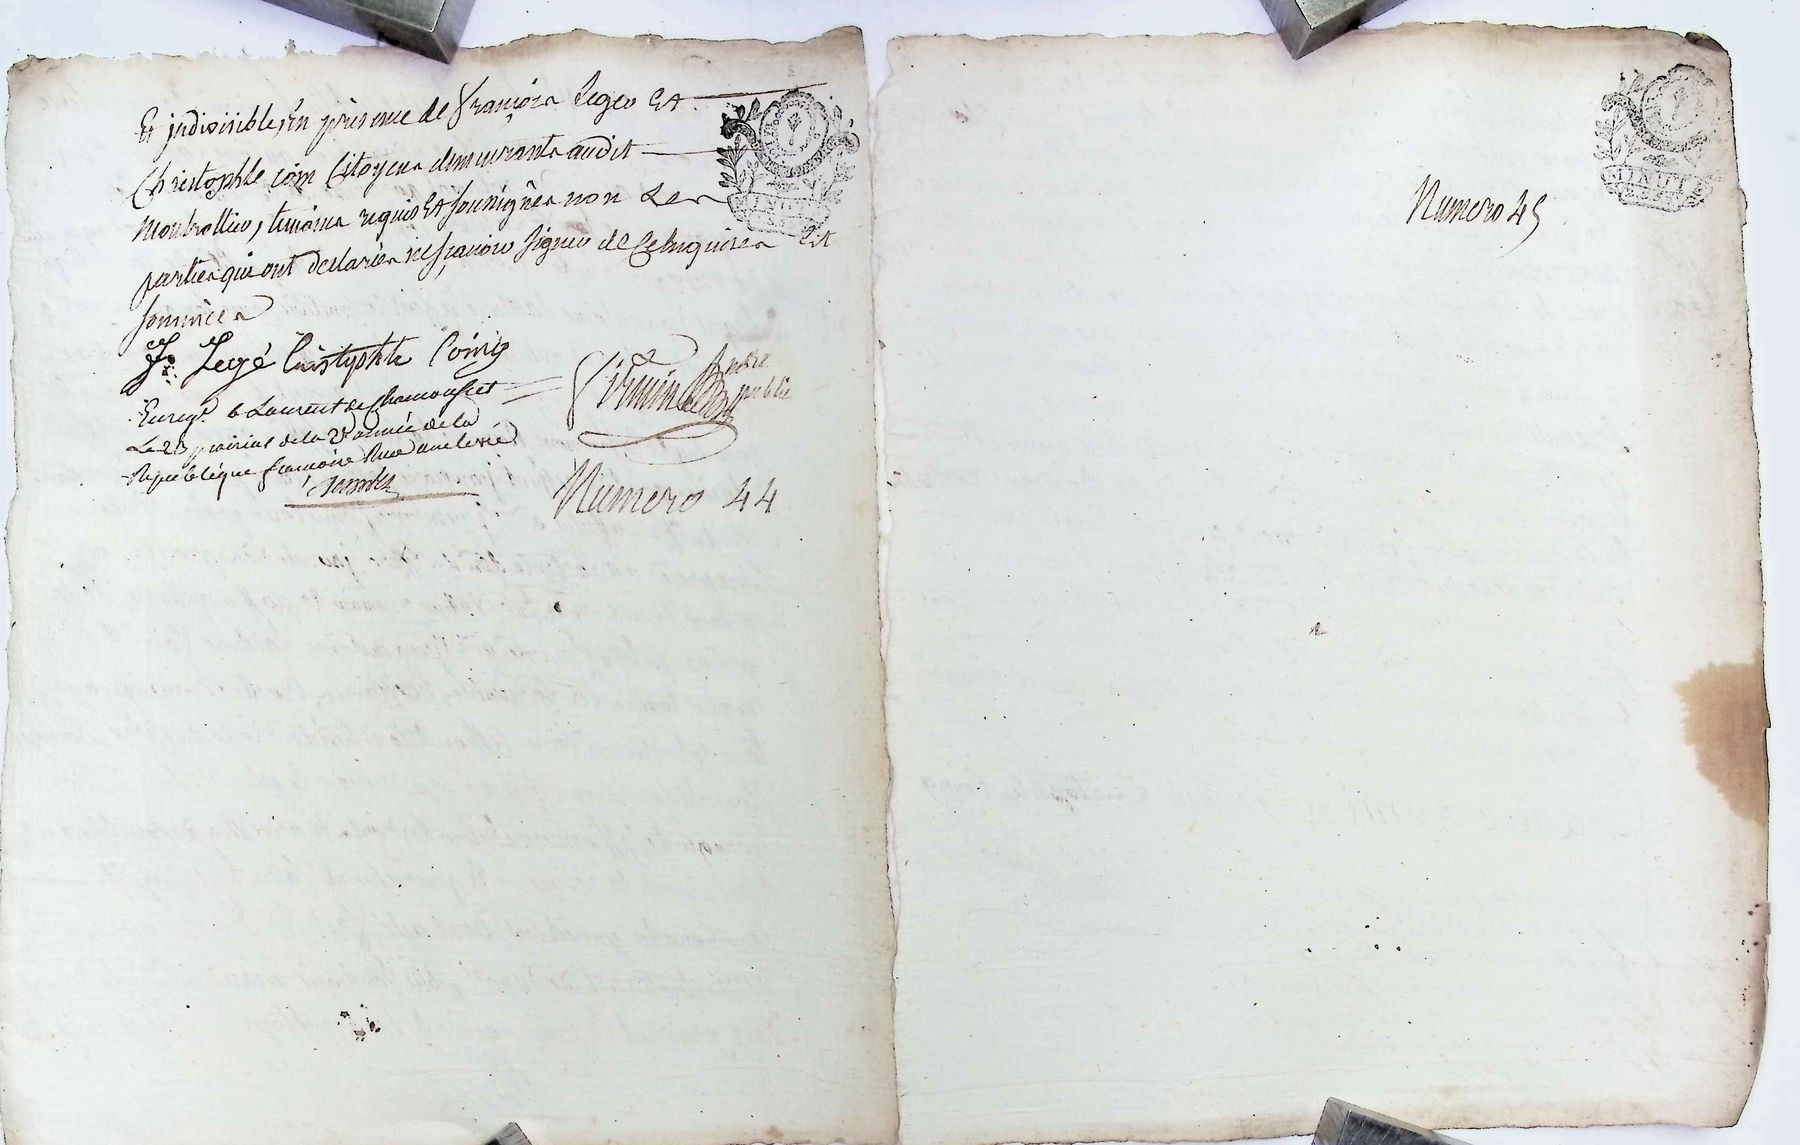 Et indivisible, En présence de François Leger Et
Christophle coin Citoyens demeurants audit
Montrottier, témoins requis Et soussignés non Les
parties qui ont declarées ne sçavoir signer de Ce enquises Et
sommées
fs. Legé Cristophle Coing
Enreg.é a Laurent de Chamousset
Le 23 prairial de la 2e année de la
Republique françoise Rue une livre
notre
public
Numero 44
MINUTE
Numero 45
MINUTE